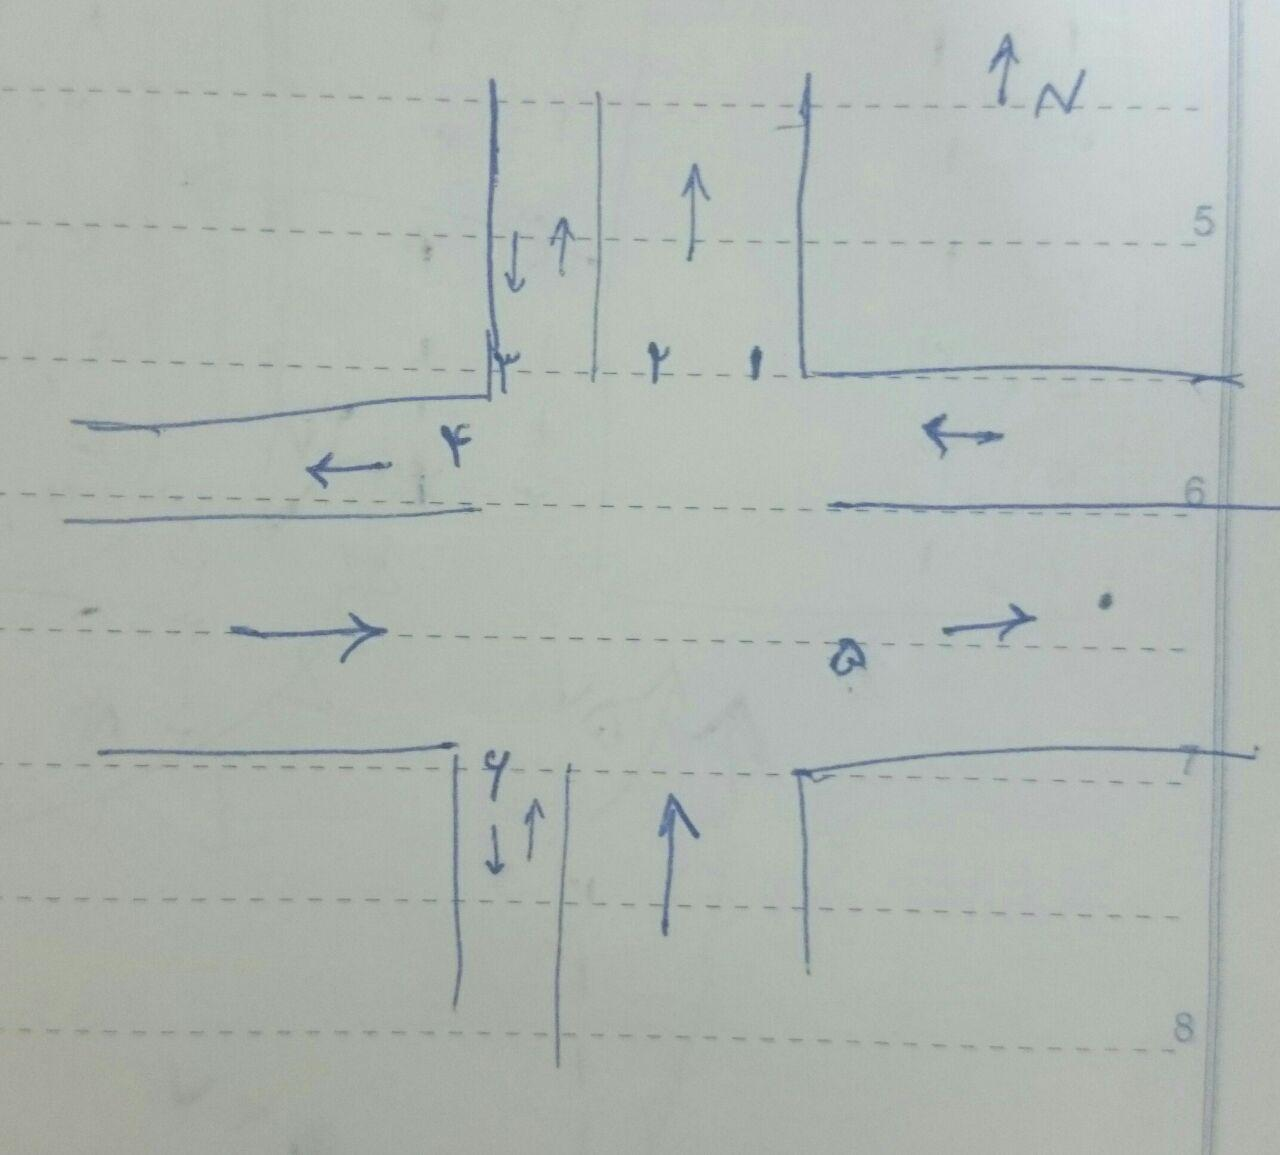 N
5
۳ ۲ ۱
۴
6
۵
7
۶
8